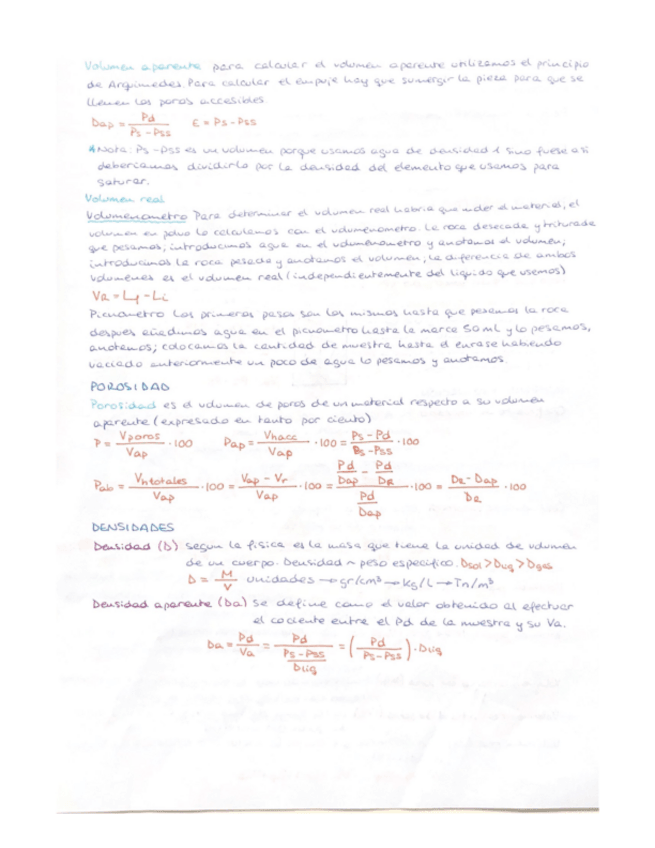 Volumen aparente para calcular el volumen aparente utilizamos el principio
de Arquímedes. Para calcular el empuje hay que sumergir la pieza para que se
llenen los poros accesibles
Dap = Pd / Ps - Pss    E = Ps - Pss
*Nota: Ps - Pss es un volumen porque usamos agua de densidad 1 sino fuese así
deberíamos dividirlo por la densidad del elemento que usamos para
saturar.
Volumen real
Volumenómetro Para determinar el volumen real habría que moler el material, el
volumen en polvo lo calculamos con el volumenómetro. La roca desecada y triturada
que pesamos; introducimos agua en el volumenómetro y anotamos el volumen;
introducimos la roca pesada y anotamos el volumen; la diferencia de ambos
volúmenes es el volumen real (independientemente del líquido que usemos)
Va = Lf - Li
Picnómetro Los primeros pasos son los mismos hasta que pesamos la roca
después añadimos agua en el picnómetro hasta la marca 50 ml y lo pesamos,
anotamos; colocamos la cantidad de muestra hasta el enrase habiendo
vaciado anteriormente un poco de agua lo pesamos y anotamos
POROSIDAD
Porosidad es el volumen de poros de un material respecto a su volumen
aparente (expresado en tanto por ciento)
P = Vporos / Vap · 100    Pap = Vhacc / Vap · 100 = Ps - Pd / Ps - Pss · 100
Pab = Vhtotales / Vap · 100 = Vap - Vr / Vap · 100 = (Pd / Dap - Pd / DR) / (Pd / Dap) · 100 = DR - Dap / DR · 100
DENSIDADES
Densidad (D) según la física es la masa que tiene la unidad de volumen
de un cuerpo. Densidad ~ peso específico. Dsol > Dliq > Dgas
D = M / V unidades → gr/cm³ → kg/L → Tn/m³
Densidad aparente (Da) se define como el valor obtenido al efectuar
el cociente entre el Pd de la muestra y su Va.
Da = Pd / Va = Pd / (Ps - Pss / Dliq) = (Pd / Ps - Pss) · Dliq